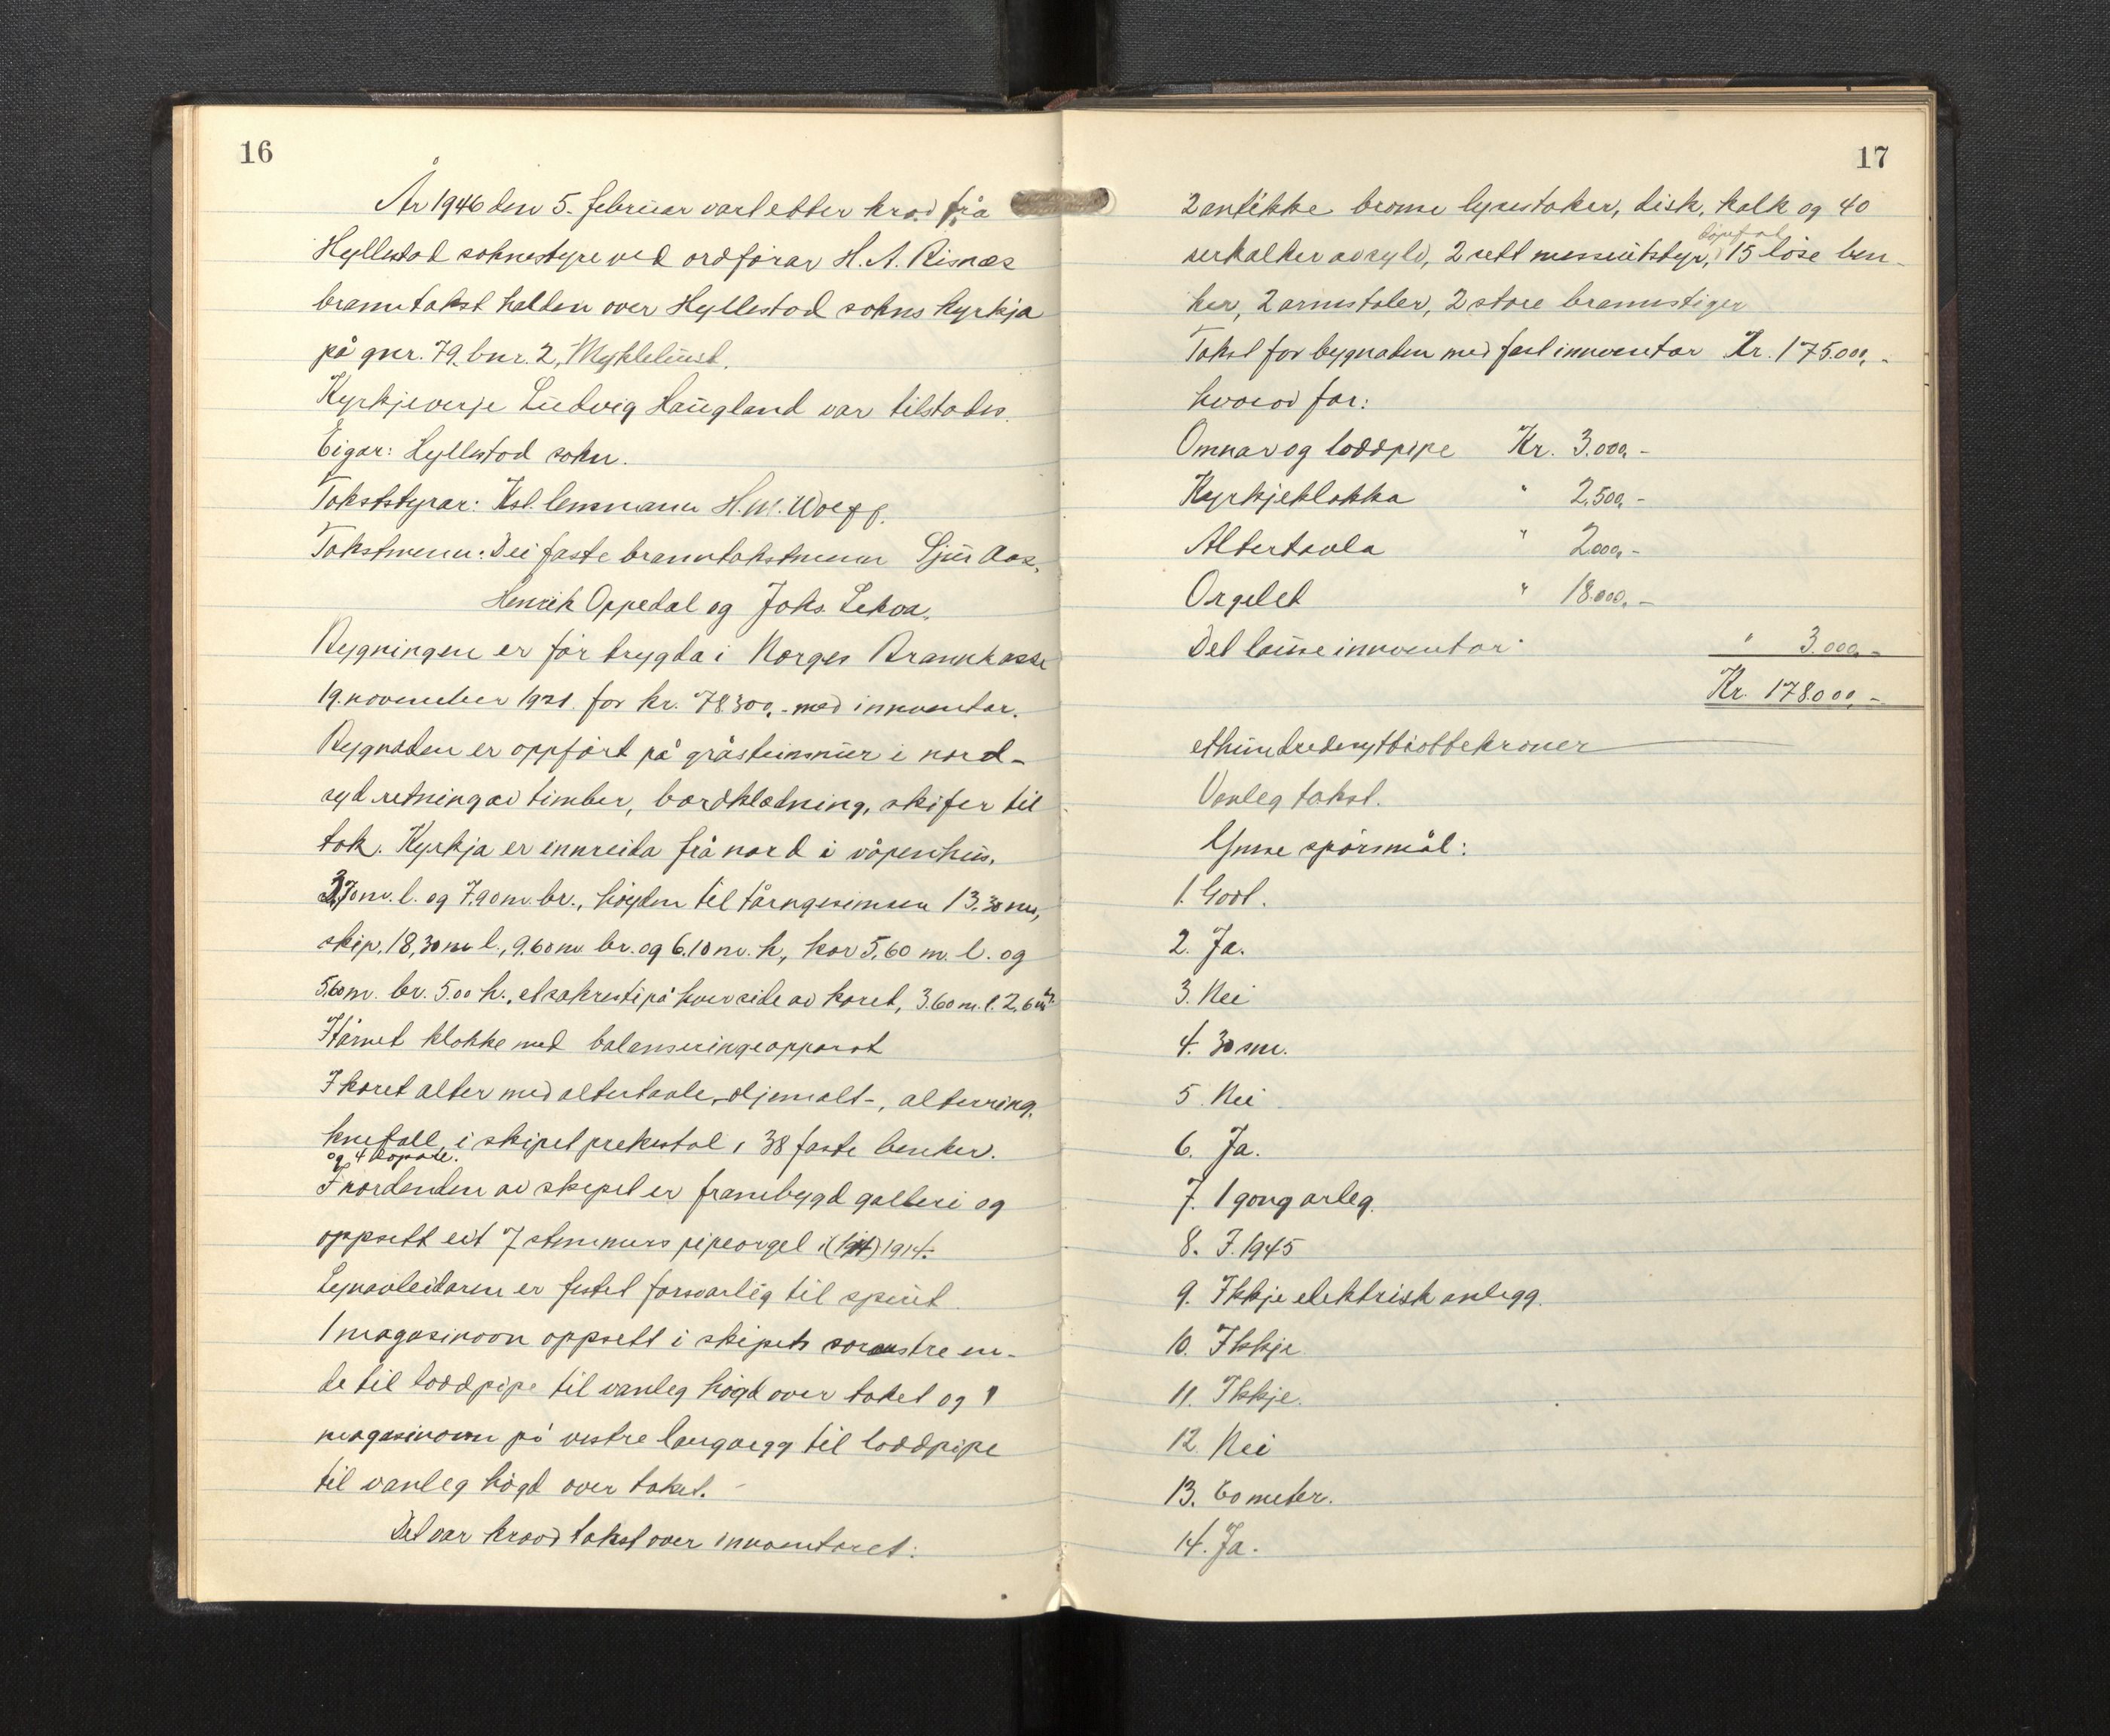 16
År 1946 den 5. februar vart etter krav frå
Hyllestad soknestyre ved ordførar H. A. Risnes
branntakst halden over Hyllestad sokns kyrkja
på gnr. 79. bnr. 2, Myklebust.
Kyrkjeverje Ludvig Haugland var tilstades.
Eigar: Hyllestad sokn.
Takststyrar: Kst. lensmann H. M. Wolff.
Takstmenn: Dei faste branntakstmenn Sjur Aas,
Henrik Oppedal og Johs. Lekva.
Bygningen er før trygda i Norges Brannkasse
19. november 1921 for kr. 78.300,- med innventar.
Bygnaden er oppført på gråsteinsmur i nord-
syd retning av timber, bordklædning, skifer til
tak. Kyrkja er innreida frå nord i våpenhus,
3,70 m. l. og 7,90 m. br., høyden til tårngesimsen 13,30 m,
skip, 18,30 m l., 9,60 m br. og 6,10 m. h, kor 5,60 m. l. og
5,60 m. br. 5.00 h., et sakresti på hver side av koret, 3.60 m. l. 2,6 m
I tårnet klokke med balanseringsapparat
I koret alter med altertavle, -oljemalt-, alterring,
knefall, i skipet prekestol, 38 faste benker.
og 4
I nordenden av skipet er frambygd galleri og
oppsett eit 7 stemmers pipeorgel i (1914) 1914.
Lynavleidaren er festet forsvarlig til spiret.
1 magasinovn oppsett i skipets søraustre en-
de til loddpipe til vanleg høgd over taket og 1
magasinovn på vestre langvegg til loddpipe
til vanleg høgd over taket. -
Det var kravd takst over innventaret:
17
2 antikke bronse lysestaker, disk, kalk og 40
serkalker av sylv, 2 sett messeutstyr, 15 løse ben-
ker, 2 armstoler, 2 store brannstiger
Takst for bygnaden med fast innventar Kr. 175.000,-
hvorav for:
Omnar og loddpipe Kr. 3.000,-
Kyrkjeklokka " 2.500,-
Altertavla " 2.000,-
Orgelet " 18.000,-
Det lause innventar " 3.000,-
Kr. 178.000,-
ethundredesyttiottekroner
Vanleg takst.
Ymse spørsmål:
1. Godt.
2. Ja.
3. Nei
4. 30 m.
5. Nei
6. Ja.
7. 1 gong årleg.
8. I. 1945
9. Ikkje elektrisk anlegg.
10. Ikkje
11. Ikkje.
12. Nei
13. 60 meter.
14. Ja.